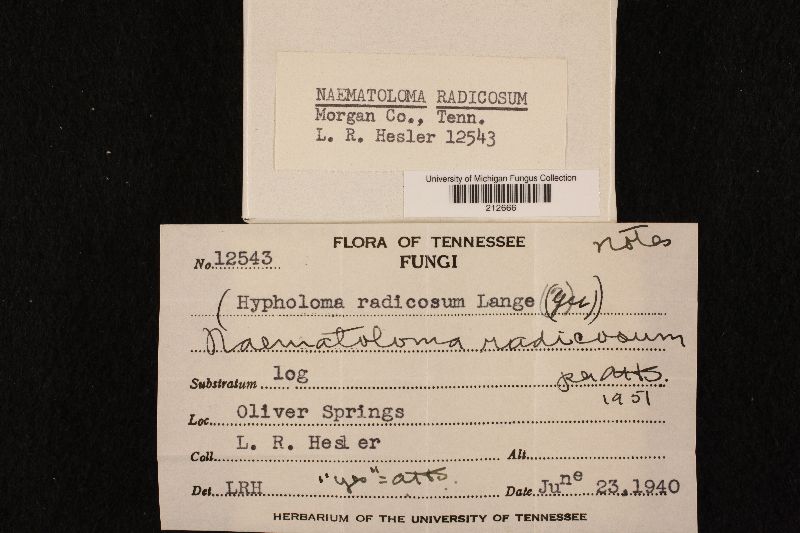 NAEMATOLOMA RADICOSUM
Morgan Co., Tenn.
L. R. Hesler 12543
University of Michigan Fungus Collection
212666
FLORA OF TENNESSEE
notes
No. 12543
FUNGI
(Hypholoma radicosum Lange (yes))
Naematoloma radicosum
Substratum log
per AHS.
1951
Loc. Oliver Springs
Coll. L. R. Hesler
Alt.
Det. LRH "yes" = AHS.
Date June 23, 1940
HERBARIUM OF THE UNIVERSITY OF TENNESSEE